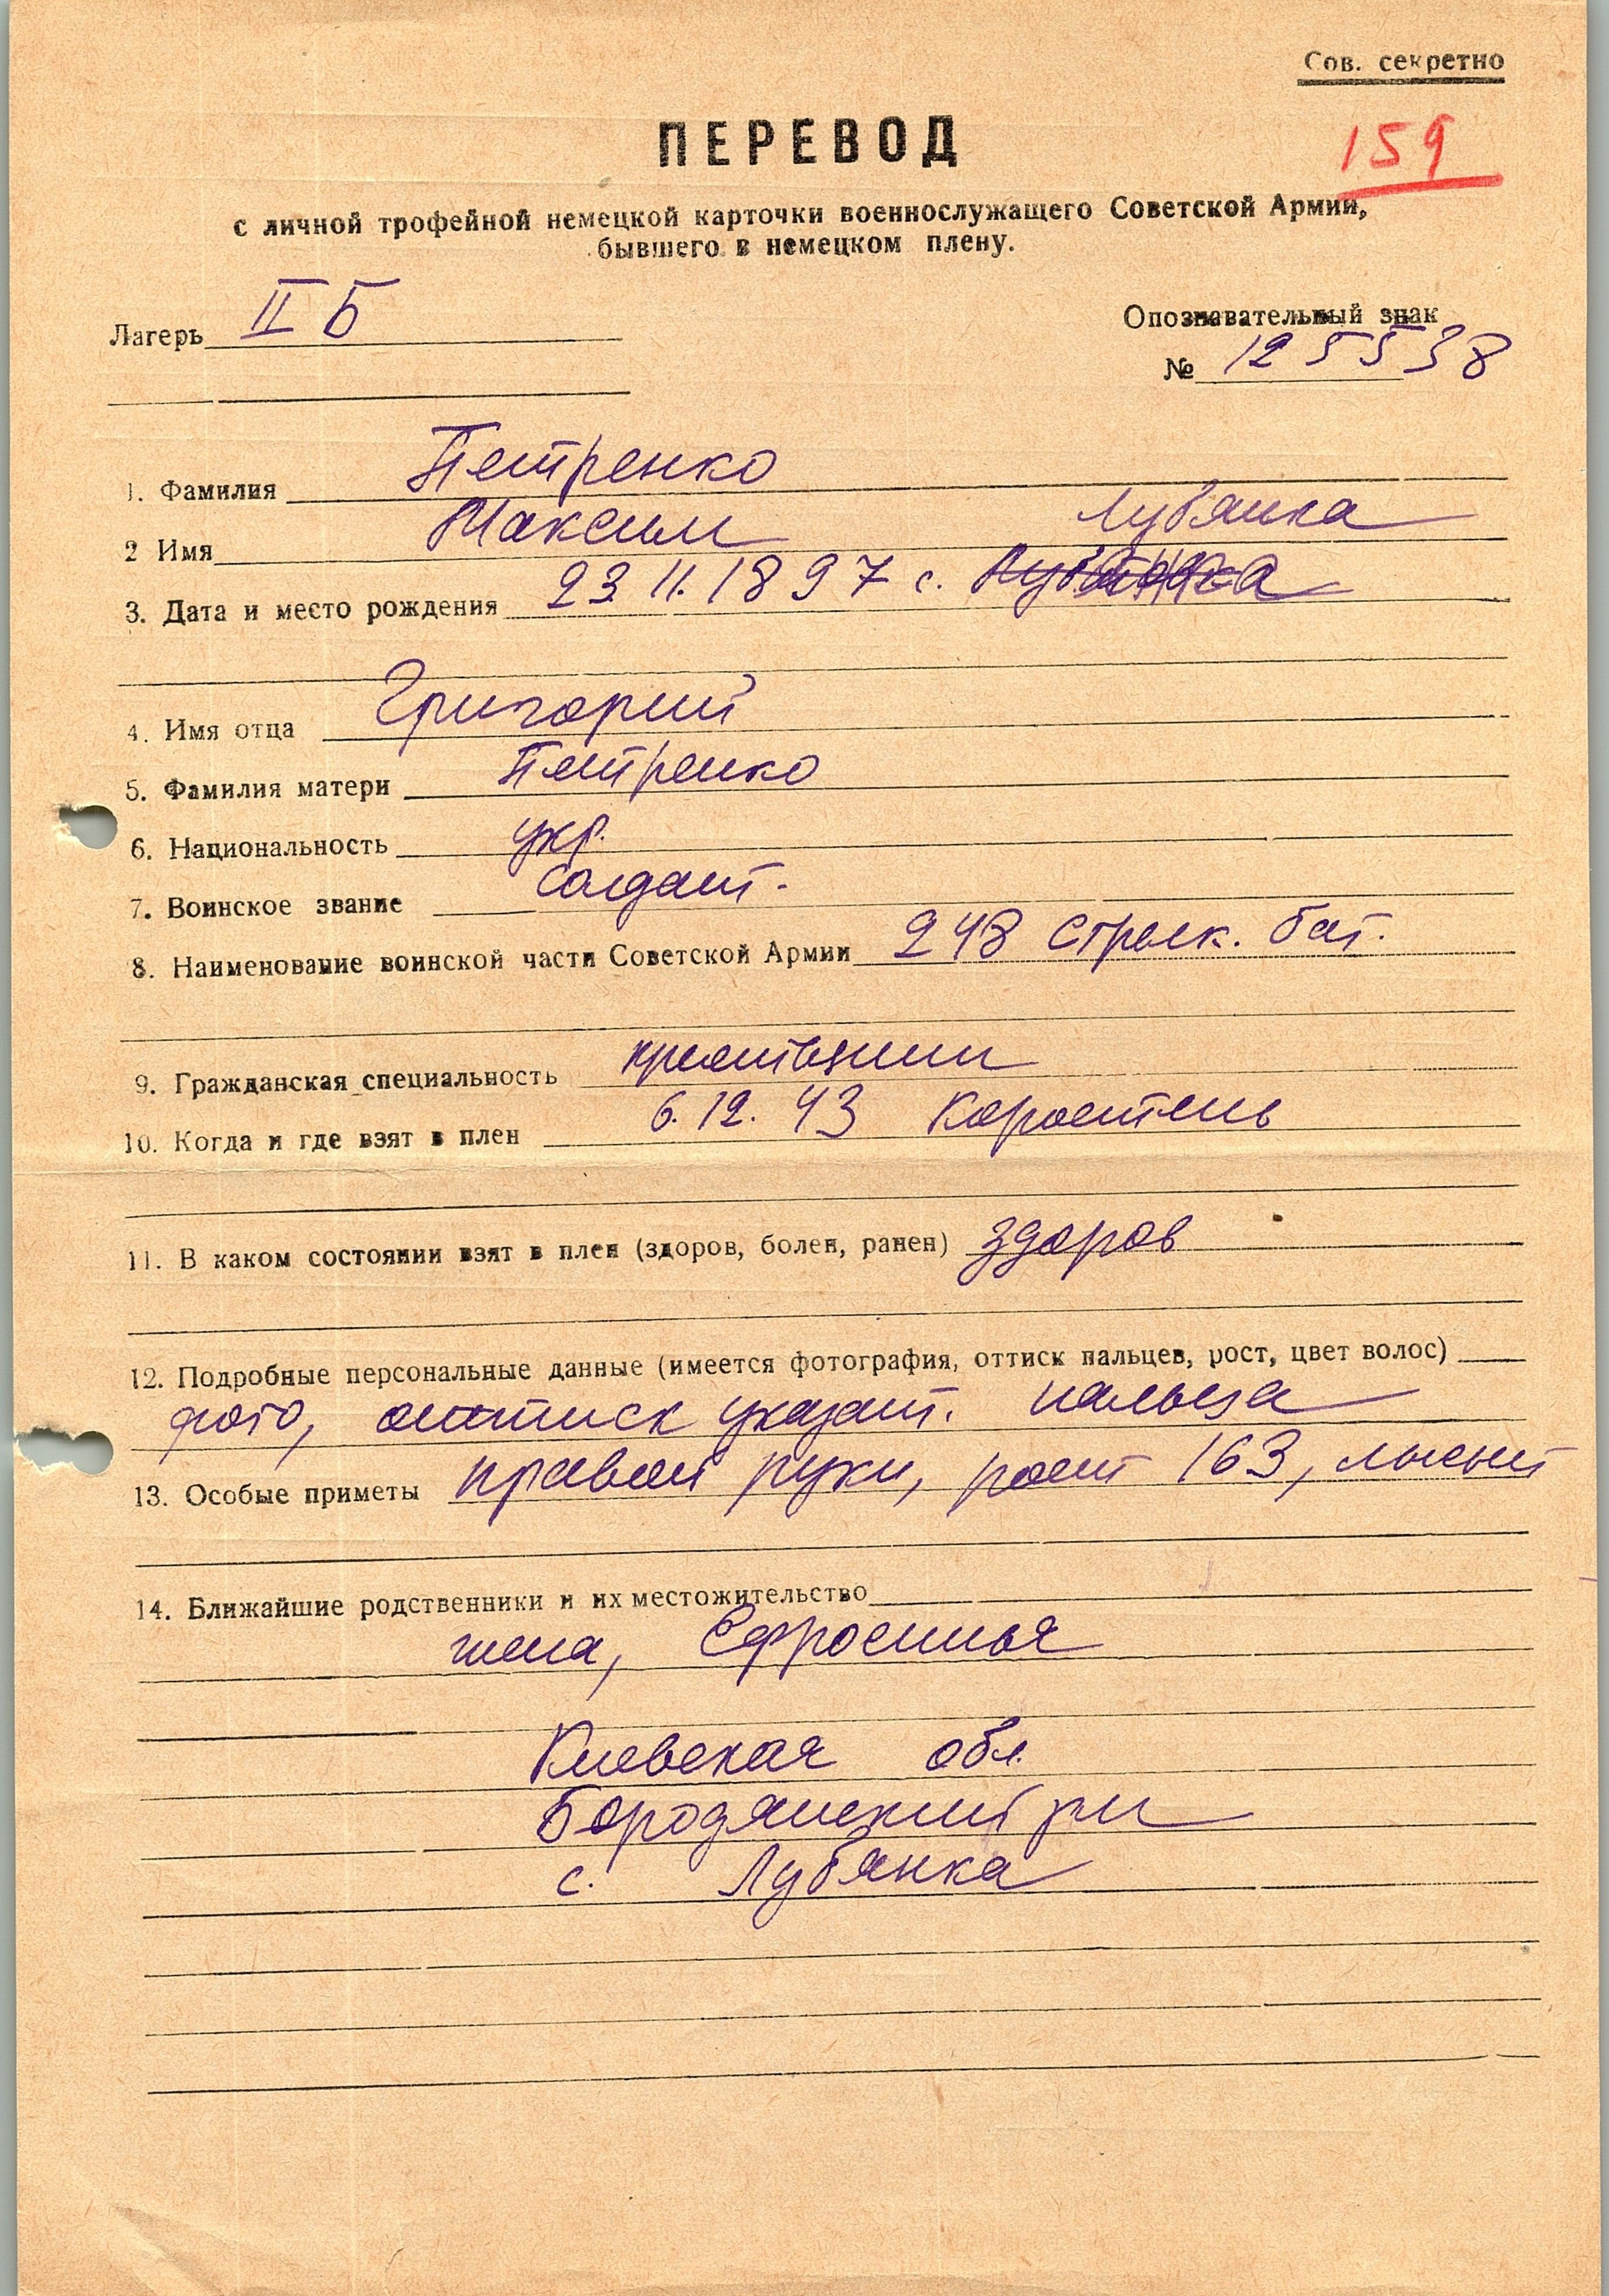 Сов. секретно
ПЕРЕВОД
159
с личной трофейной немецкой карточки военнослужащего Советской Армии,
бывшего в немецком плену.
Лагерь II Б
Опознавательный знак
№ 125538
1. Фамилия Петренко
2 Имя Максим Лубянка
3. Дата и место рождения 23.11.1897 с.
4. Имя отца Григорий
5. Фамилия матери Петренко
6. Национальность укр.
7. Воинское звание Солдат.
8. Наименование воинской части Советской Армии 248 Стрелк. бат.
9. Гражданская специальность крестьянин
10. Когда и где взят в плен 6.12.43 Коростень
11. В каком состоянии взят в плен (здоров, болен, ранен) здоров
12. Подробные персональные данные (имеется фотография, оттиск пальцев, рост, цвет волос)
фото, оттиск указат. пальца
13. Особые приметы правой руки, рост 163, лысый
14. Ближайшие родственники и их местожительство
жена, Ефросинья
Киевская обл.
Бородянский рн
с. Лубянка